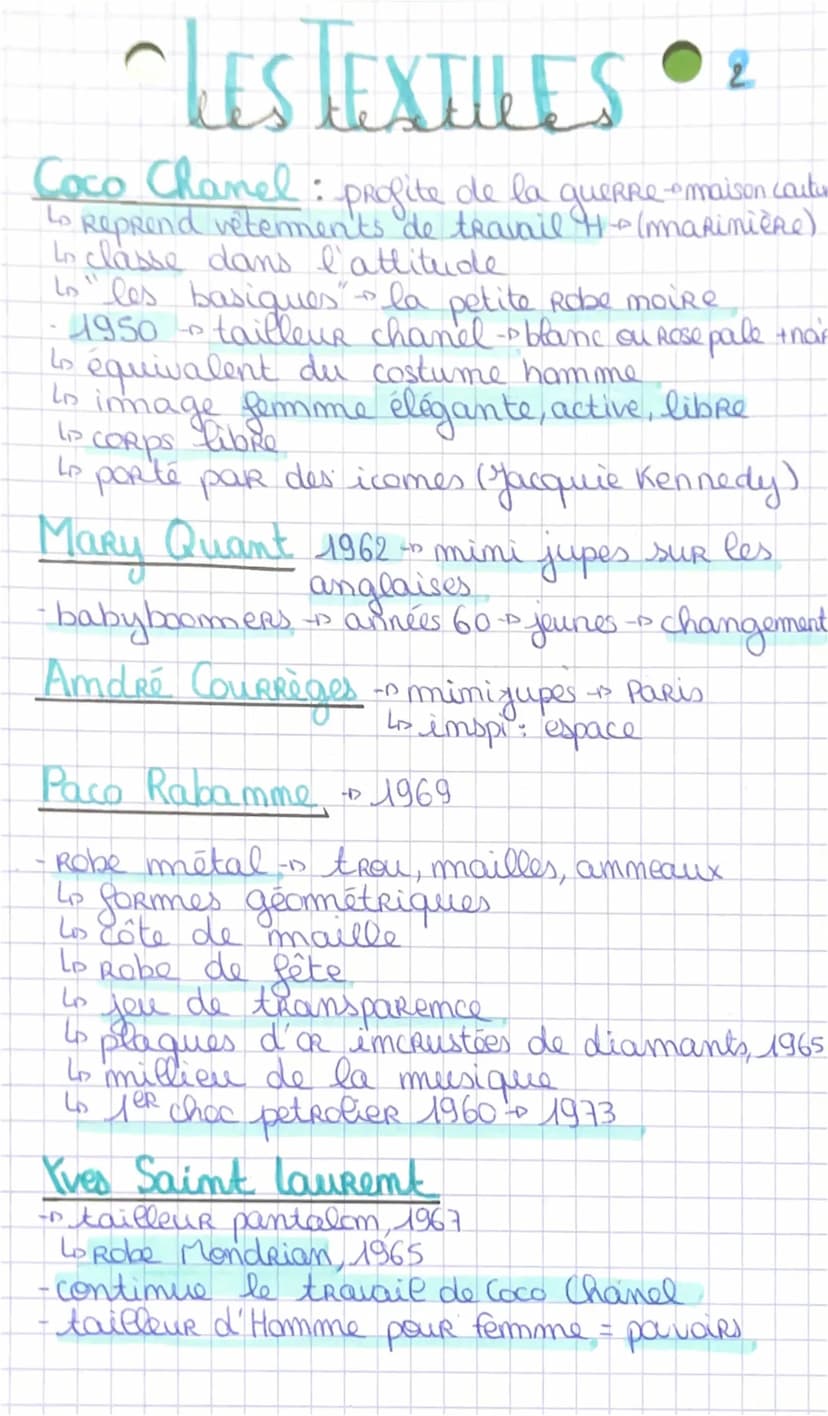 LES TEXTILES 2
les textiles
Coco Chanel : profite de la guerre → maison coutur
↳ Reprend vêtements de travail H → (marinière)
↳ classe dans l'attitude
↳ "les basiques" → la petite Robe noire
- 1950 → tailleur chanel → blanc ou Rose pale + noir
↳ équivalent du costume homme
↳ image femme élégante, active, libre
↳ corps libre
↳ porté par des icones (Jacquie Kennedy)
Mary Quant 1962 → mini jupes sur les
anglaises
- babyboomers → années 60 → jeunes → changement
André Courrèges → minijupes → Paris
↳ inspi : espace
Paco Rabanne, → 1969
- Robe métal → trou, mailles, anneaux
↳ formes géométriques
↳ côte de maille
↳ Robe de fête
↳ jeu de transparence
↳ plaques d'or incrustées de diamants, 1965
↳ millieu de la musique
↳ 1er choc petrolier 1960 → 1973
Yves Saint Laurent
→ tailleur pantalon, 1967
↳ Robe Mondrian, 1965
- continue le travail de Coco Chanel
- tailleur d'Homme pour femme = pouvoirs